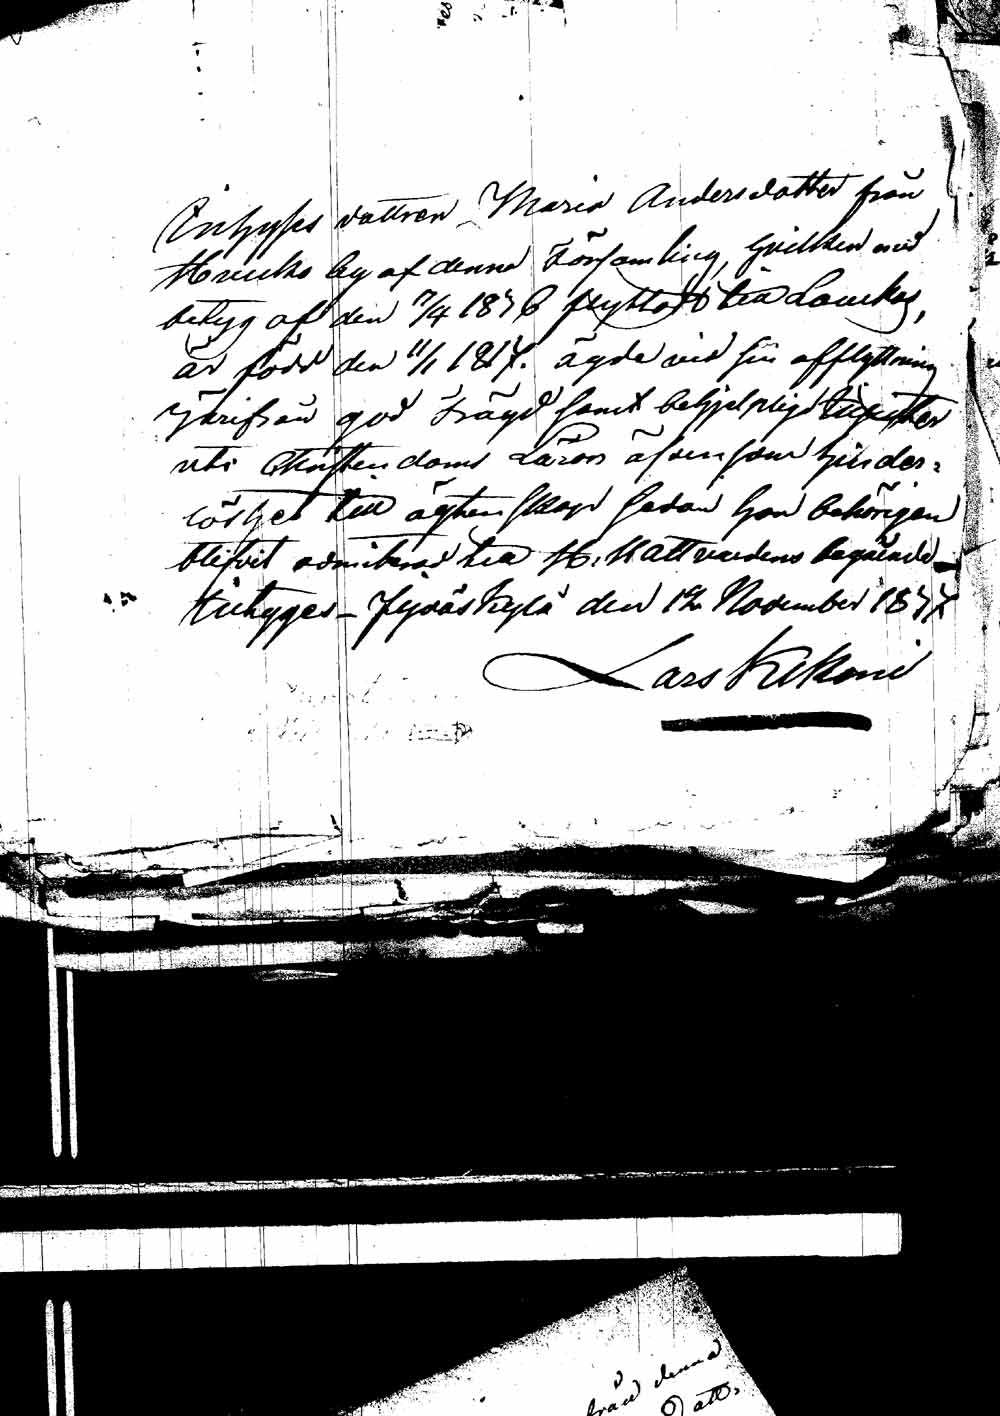 Inhyses dottren Maria Andersdotter från
by af denna Församling, hvilken med
betyg af den 7/4 1876 flyttat till Laukas,
är född den 11/1 1817. ägde vid sin afflyttning
härifrån god frägd samt behjelpliga insigter
uti Christendoms Läran äfvensom hinder-
löshet till ägtenskap sedan hon behörigen
blifvit admitterad till H. Nattvardens begående
Jyväskylä den 12 November 1877
Lars Kiljoni
från denna
Dott.